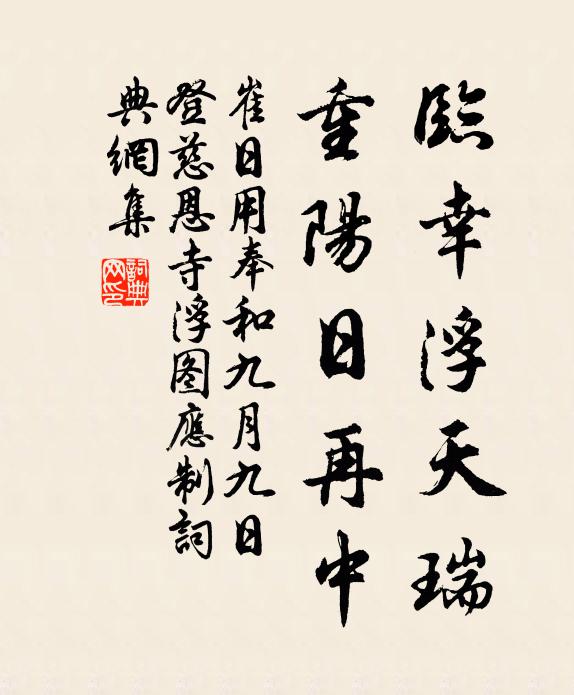 臨幸浮天瑞
重陽日再中
崔日用奉和九月九日
登慈恩寺浮图應制詞
典網集
詞典网印